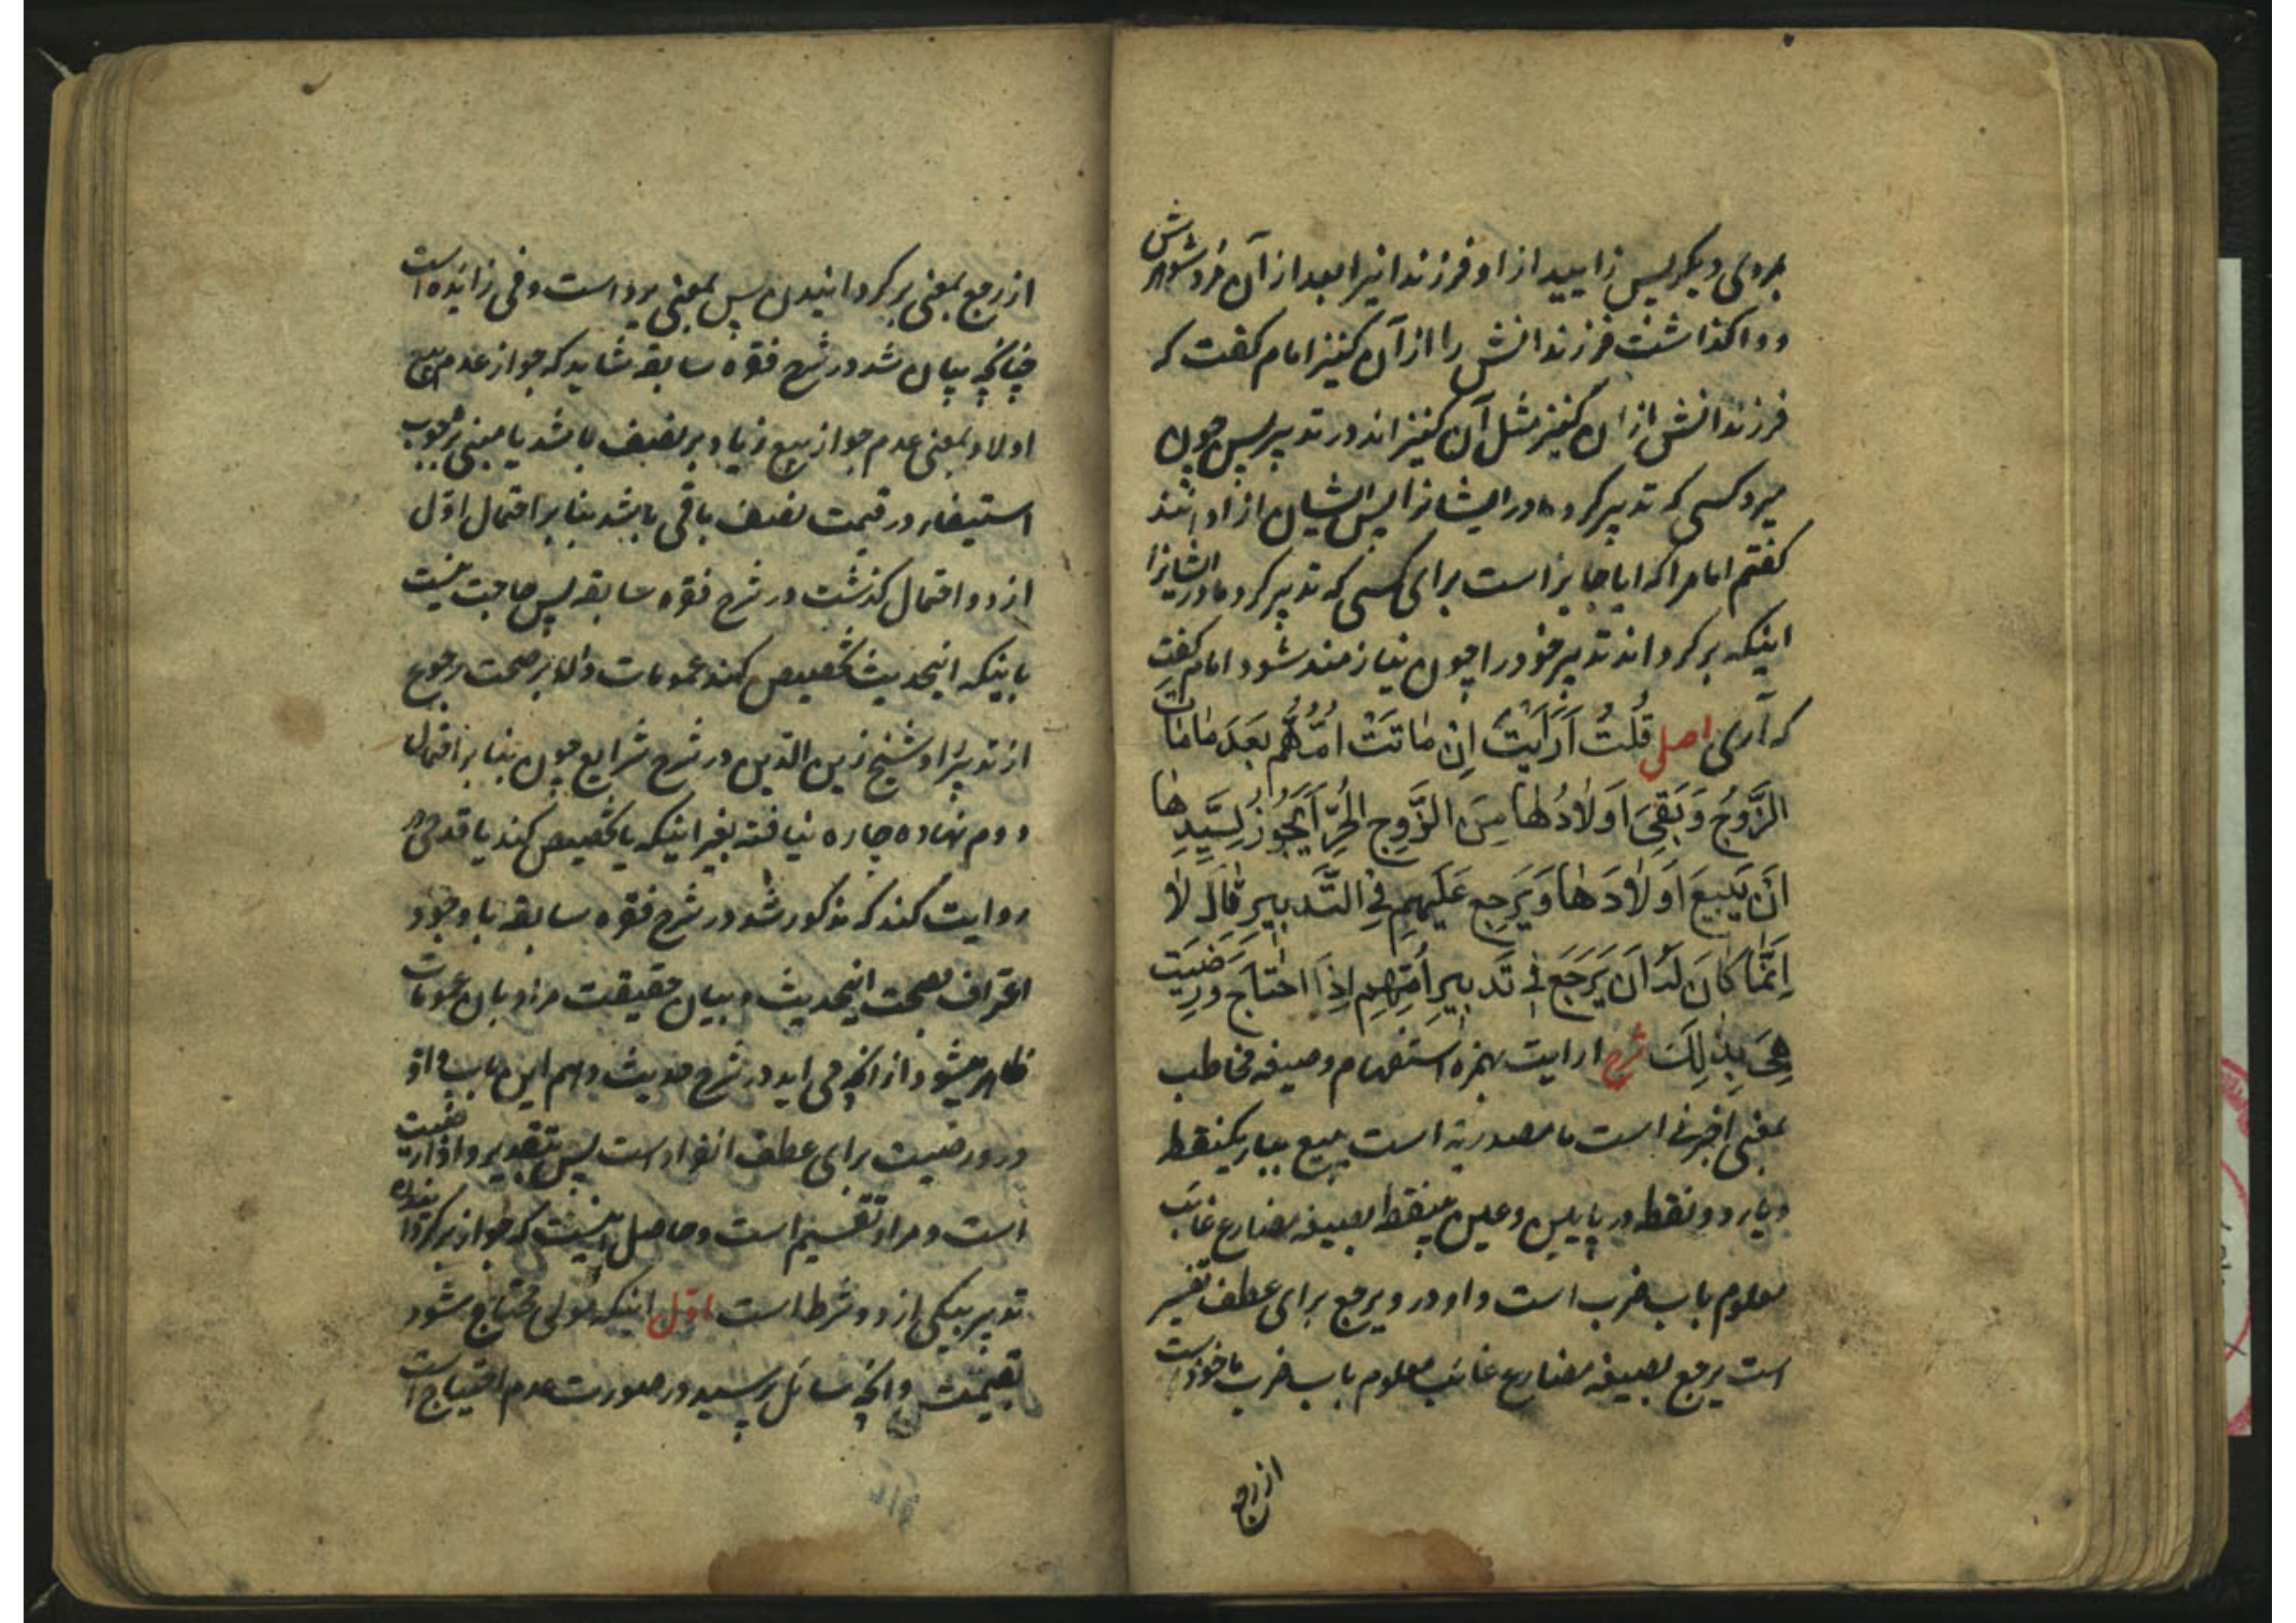 بمردی دیکر پس زایید از او فرزندانیرا بعد از آن مُرد شوهرش
و واکذاشت فرزندانش را از آن کنیز امام کفت که
فرزندانش از ان کنیز مثل آن کنیز اند در تدبیر پس چون
میرد کسی که تدبیر کرده مادر ایشانرا پس ایشان ازادانند
کفتم امام را که ایا جایز است برای کسی که تدبیر کرد مادر ایشانرا
اینکه برکرداند تدبیر خود را چون نیازمند شود امام کفت
که آری اصل قُلتُ اَرَاَیتَ اِن مٰاتَتْ اُمُّهُم بَعدَ مٰامٰات
الزَّوجُ وَبَقِیَ اَولٰادُهٰا مِنَ الزَّوجِ الحُرِّ اَیَجُوزُ لِسَیِّدِهٰا
اَن یَبیعَ اَولٰادَهٰا وَیَرجِع عَلَیهِم فِی التَّدبِیرِ قٰالَ لٰا
اِنَّمٰا کٰانَ لَهُ اَن یَرجِعَ فِی تَدبِیرِ اُمِّهِم اِذَا احتٰاجَ وَرَضِیَت
هِیَ بِذٰلِکَ شرح ارایت بهمزه استفهام و صیغه مخاطب
بمعنی اخبرنی است ما مصدریه است یبیع بباء یکنقطه
و یاء دو نقطه در پایین و عین بینقطه بصیغه مضارع غائب
معلوم باب ضرب است واو در و یرجع برای عطف تفسیر
است یرجع بصیغه مضارع غائب معلوم باب ضرب ماخوذ است
از رجع
از رجع بمعنی برکردانیدن پس بمعنی یرد است و فی زائده است
چنانچه بیان شد در شرح فقره سابقه شاید که جواز عدم بیع
اولاد بمعنی عدم جواز بیع زیاد بر نصف باشد یا مبنی بر وجوب
استیفاء در قیمت نصف باقی باشد بنابر احتمال اوّل
از دو احتمال کذشت در شرح فقره سابقه پس حاجت نیست
باینکه اینحدیث تخصیص کند عمومات داله بر صحت رجوع
از تدبیر را و شیخ زین الدین در شرح شرایع چون بنا بر احتمال
دوم نهاده چاره نیافته بغیر اینکه یا تخصیص کند یا قدح در
روایت کند که مذکور شد در شرح فقره سابقه با وجود
اعتراف بصحت اینحدیث و بیان حقیقت مراد بان عمومات
ظاهر میشود از انچه می اید در شرح حدیث دهم این باب واو
در و رضیت برای عطف انفراد است پس بتقدیر و اذا رضیت
است و مراد تقسیم است و حاصل اینست که جواز برکرداندن
تدبیر بیکی از دو شرط است اوّل اینکه مولی محتاج شود
بقیمت و انچه سائل پرسید در صورت عدم احتیاج است